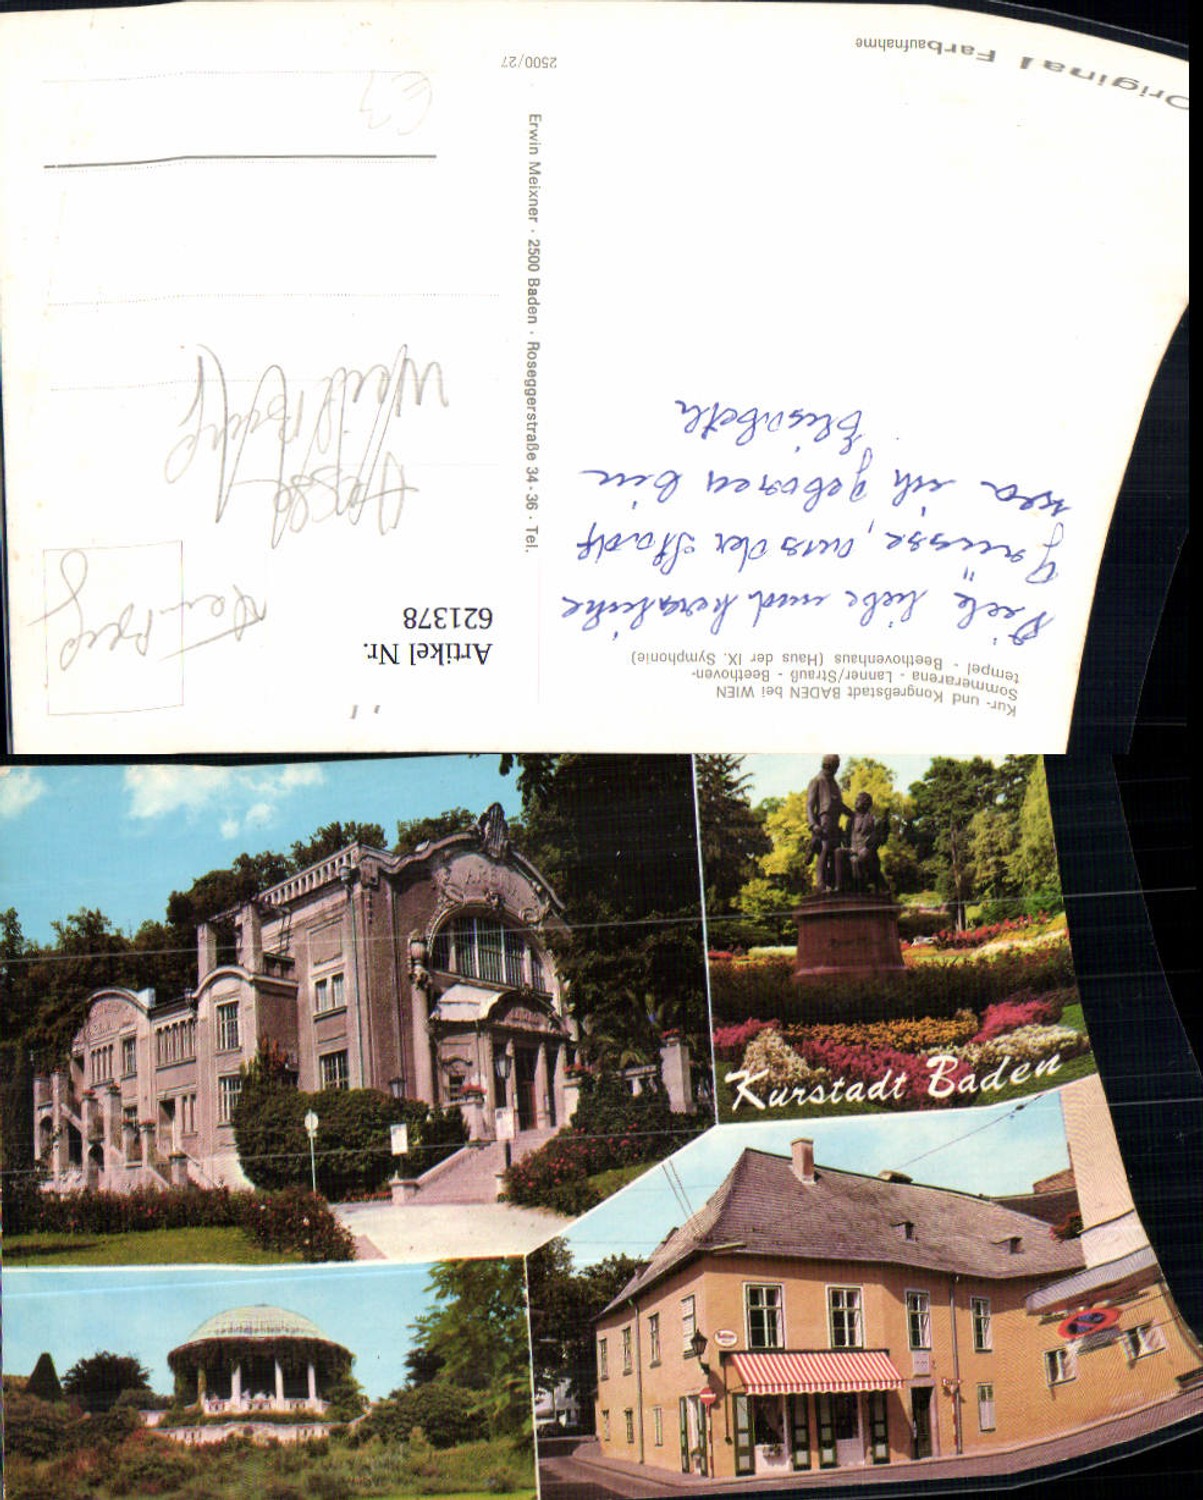 Original Farbaufnahme
2500/27
Erwin Meixner · 2500 Baden · Roseggerstraße 34-36 · Tel.
Kur- und Kongreßstadt BADEN bei WIEN
Sommerarena - Lanner/Strauß - Beethoven-
tempel - Beethovenhaus (Haus der IX. Symphonie)
Viele liebe und herzliche
Grüsse, aus der Stadt
wo ich geboren bin
Elisabeth
Artikel Nr.
621378
ARENA
Kurstadt Baden